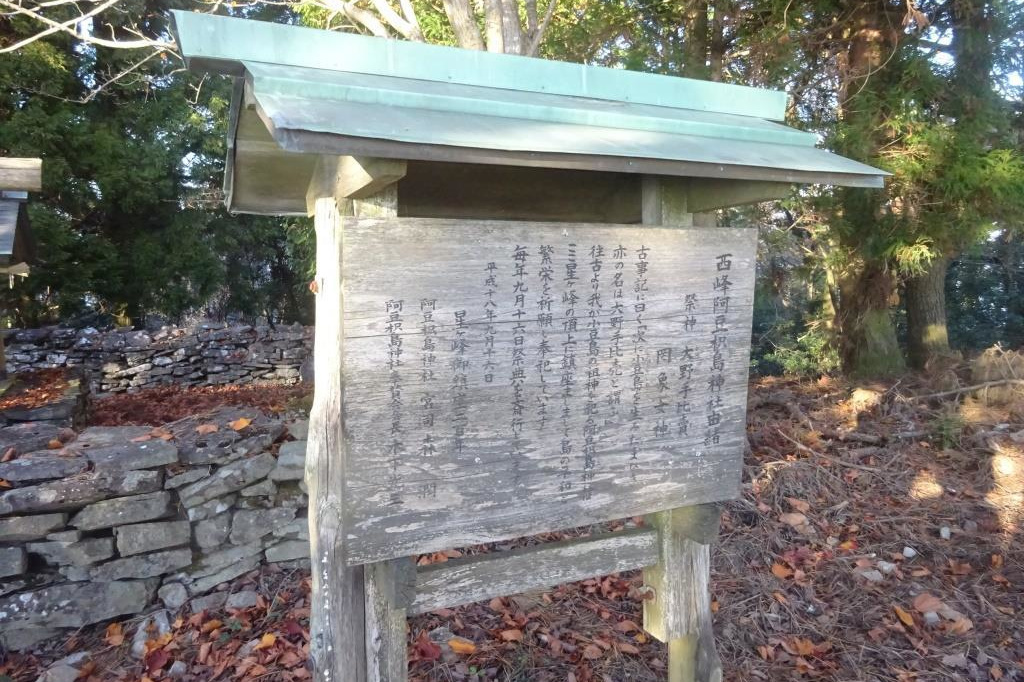 西峰阿豆枳島神社由緒
祭神 大野手比賣
罔象女神
古事記に曰く次に小豆島を生みたまひき
亦の名は大野手比売と謂ふ
往古より我が小豆島の祖神を祀る阿豆枳島神社は
三星ヶ峰の頂上に鎮座まします島の平和
繁栄を祈願し奉祀しています
毎年九月十六日祭典を斎行して
平成十八年九月十六日
星ヶ峰御鎮座二
阿豆枳島神社 宮司
阿豆枳島神社奉賛会会長